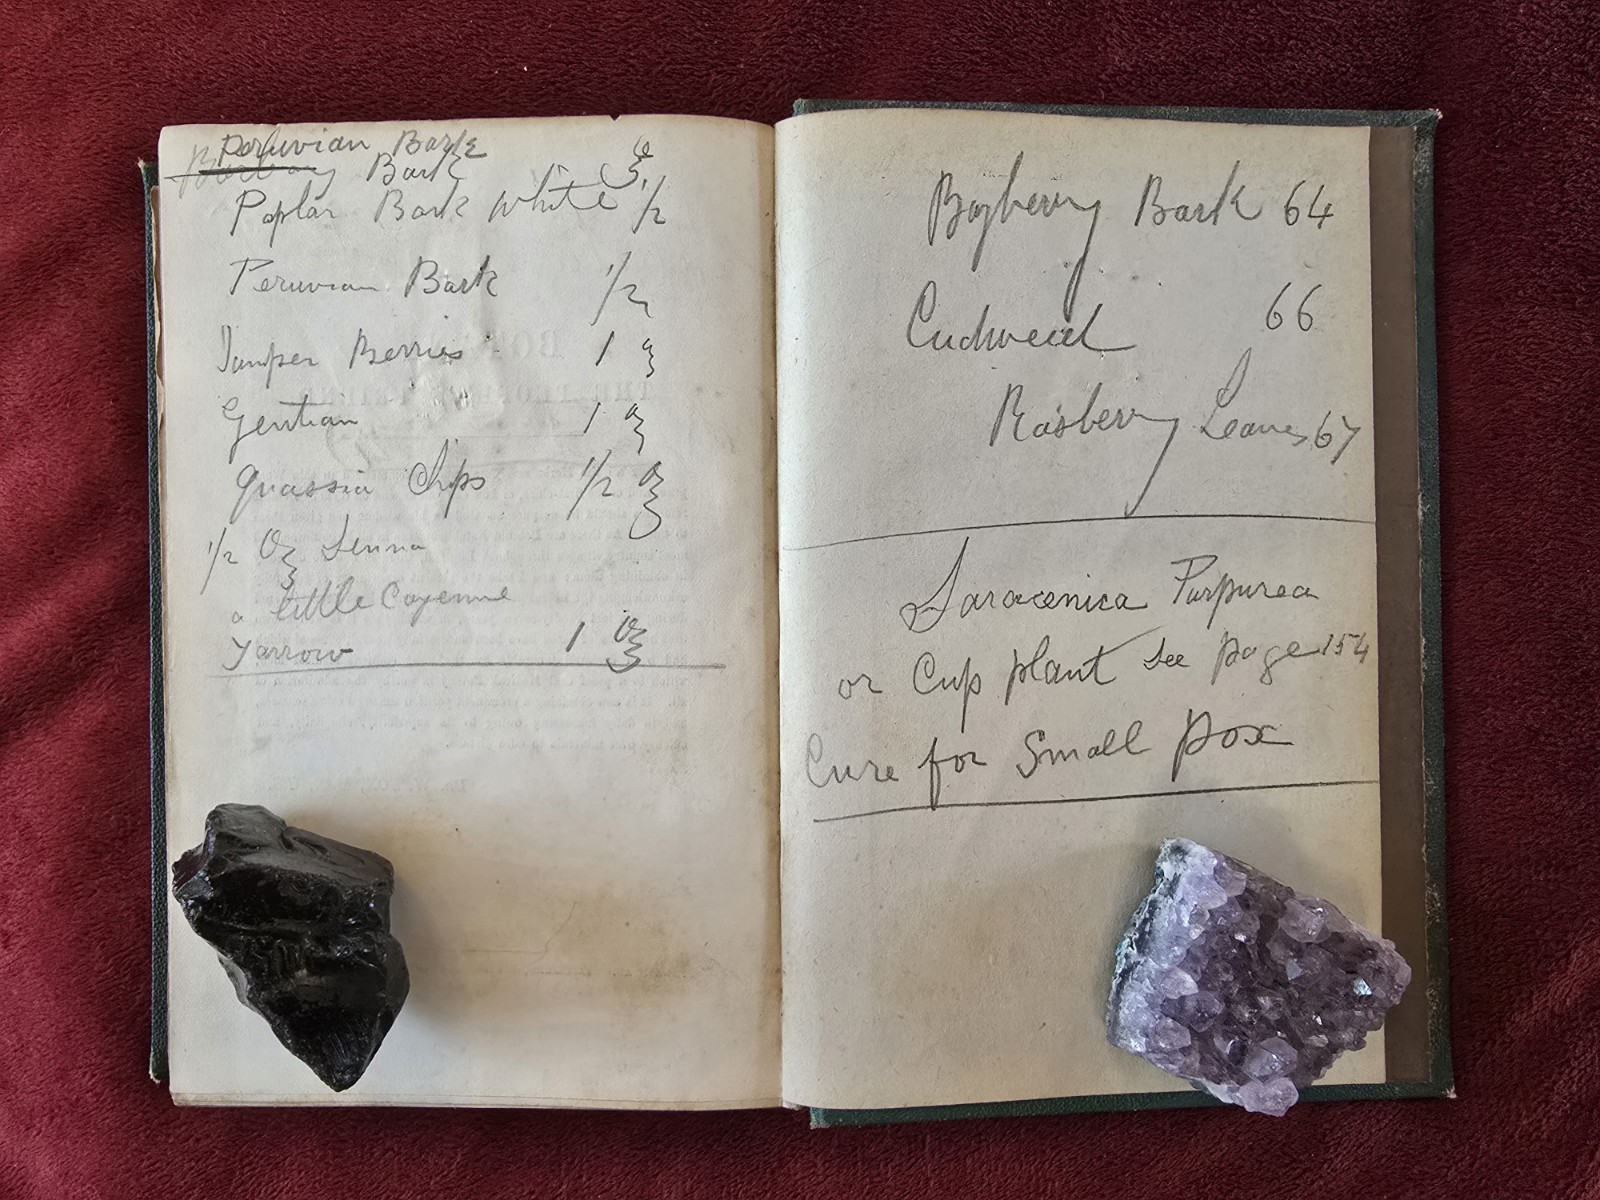 Peruvian Bark
Bark ℥
Poplar Bark white 1/2
Peruvian Bark 1/2
Juniper Berries 1 ℥
Gentian 1 ℥
Quassia Chips 1/2 ℥
1/2 Oz Senna
a little Cayenne
Yarrow 1 ℥
Bayberry Bark 64
Cudweed 66
Rasberry Leaves 67
Saracenica Purpurea
or Cup plant See page 154
Cure for Small pox